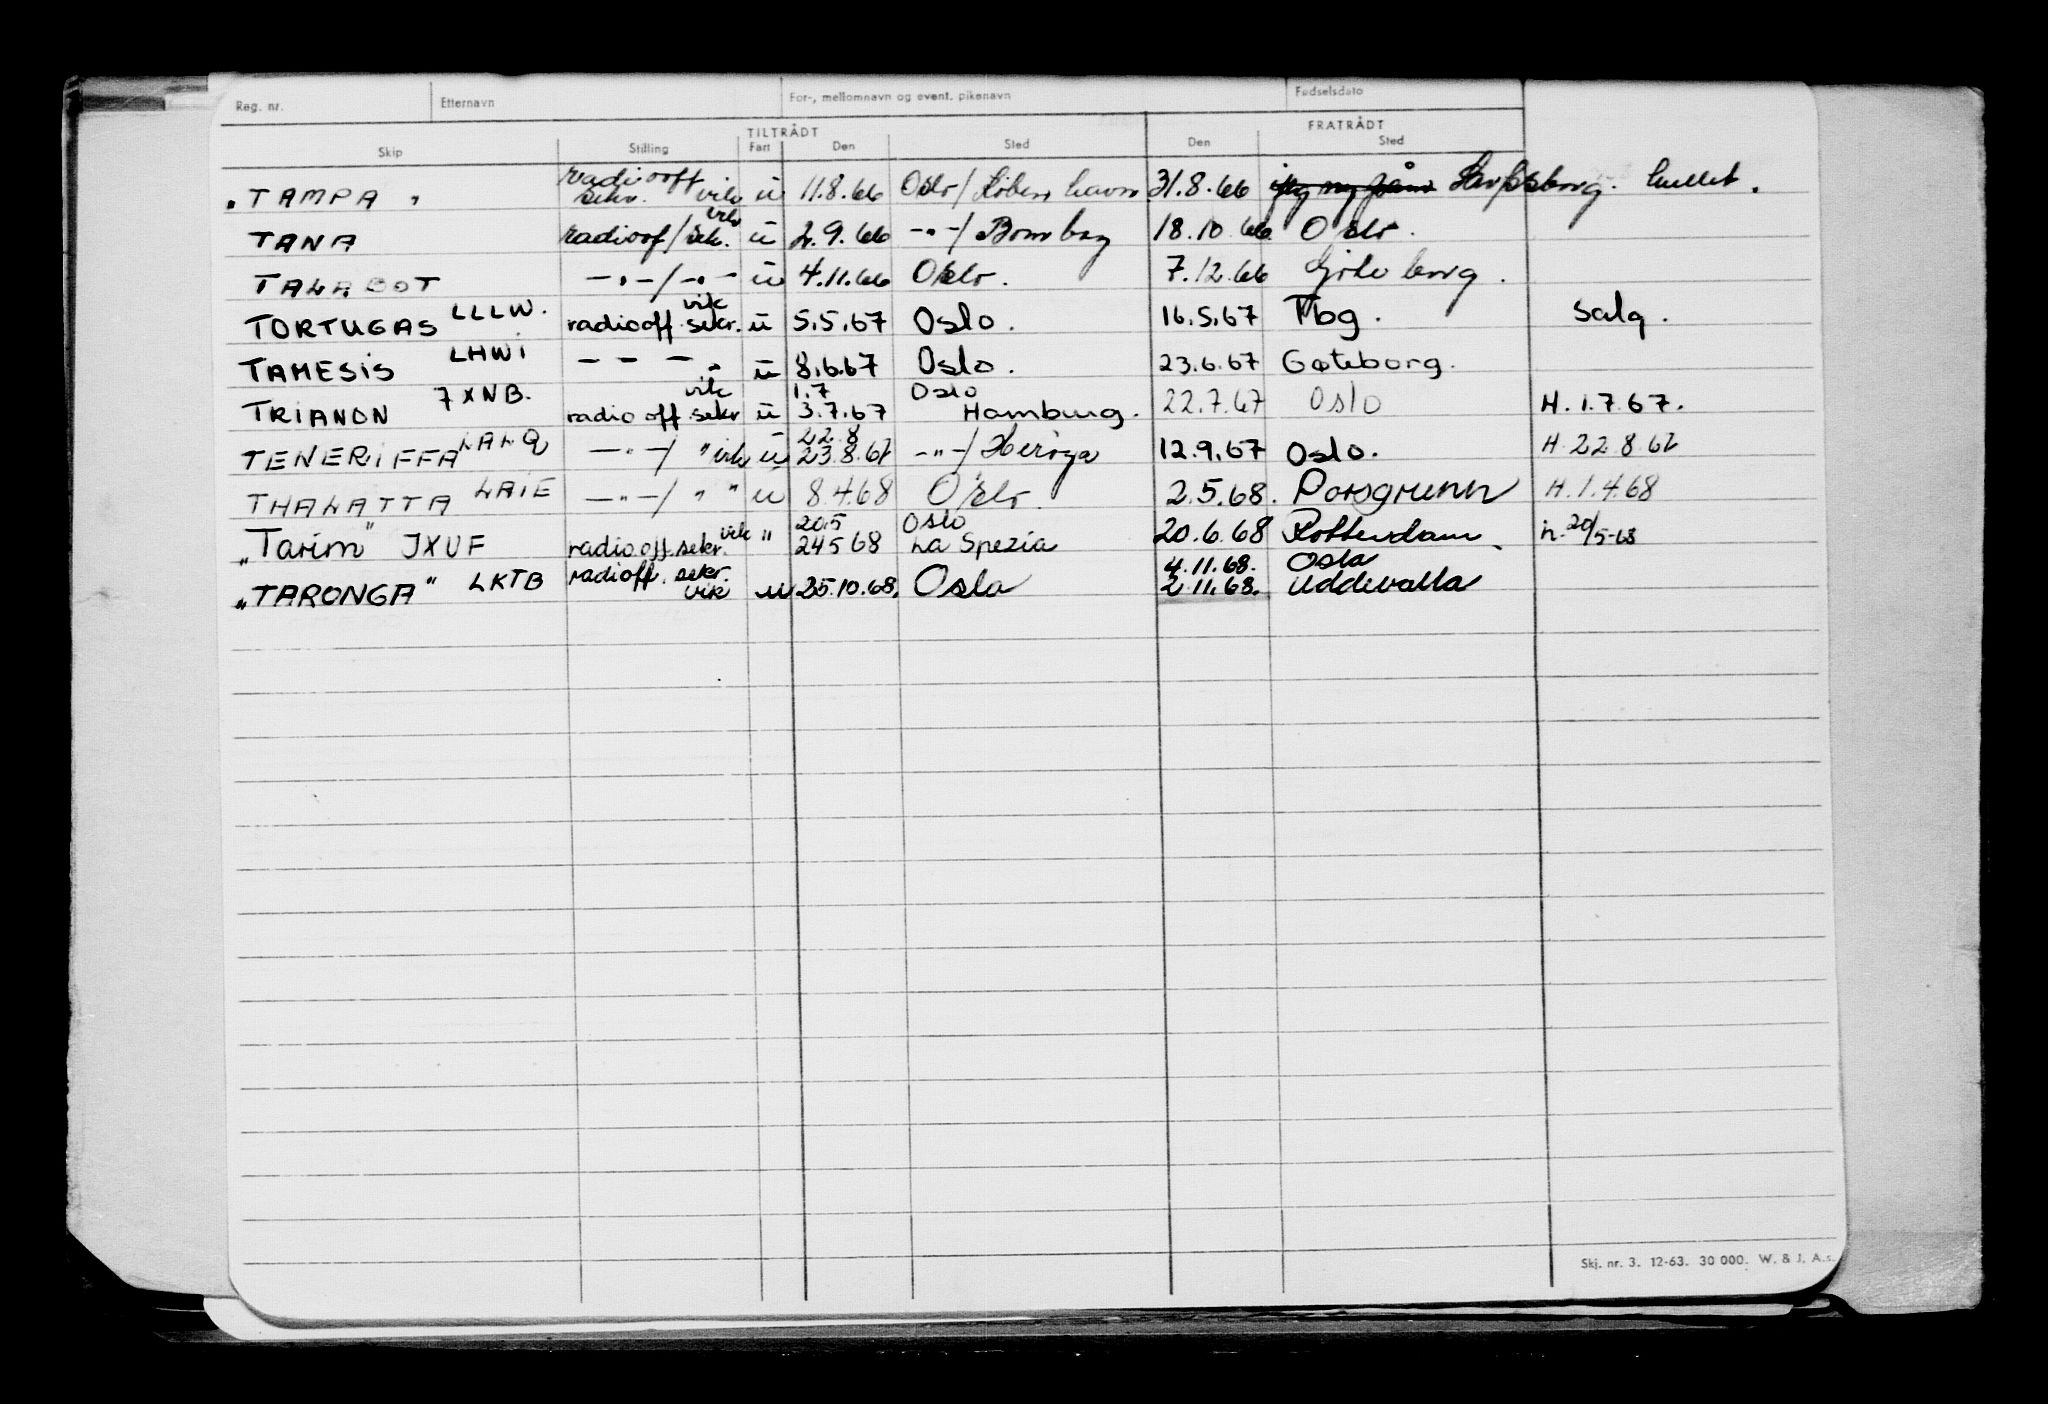 Reg. nr. Etternavn For-, mellomnavn og event. pikenavn Fødselsdato
TILTRÅDT FRATRÅDT
Skip Stilling Fart Den Sted Den Sted
"TAMPA" radiooff sekr. vik u 11.8.66 Oslo/København 31.8.66 Sarpsborg.
TANA radioof/sekr. vik u 2.9.66 -"-/Bombay 18.10.66 Oslo.
TALABOT -"-/-"- u 4.11.66 Oslo. 7.12.66 Göteborg.
TORTUGAS LLLW. radiooff.sekr. vik u 5.5.67 Oslo. 16.5.67 Tbg. Salg.
TAMESIS LHWI - - - " u 8.6.67 Oslo. 23.6.67 Gøteborg.
1.7 Oslo
TRIANON 7XNB. radiooff.sekr vik u 3.7.67 Hamburg. 22.7.67 Oslo H. 1.7.67.
22.8
TENERIFFA LALQ -"-/ " vik u 23.8.67 -"-/Herøya 12.9.67 Oslo. H. 22.8.67
THALATTA LAIE -"-/ " " u 8.4.68 Oslo. 2.5.68. Porsgrunn H. 1.4.68
20.5 Oslo
"Tarim" JXUF radiooff.sekr. vik " 24568 La Spezia 20.6.68 Rotterdam h. 20/5-68
4.11.68. Oslo
"TARONGA" LKTB radioff. sekr. vik u 25.10.68. Oslo 2.11.68. Uddevalla
Skj. nr. 3. 12-63. 30 000. W. & J. A.s.